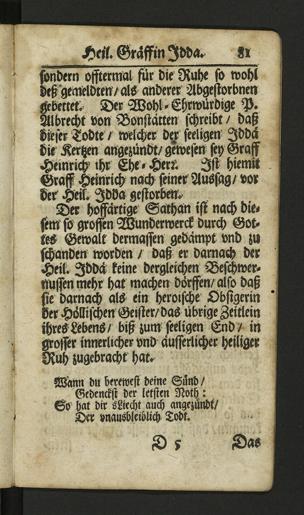 Heil. Gräffin Idda. 81
sondern offtermal für die Ruhe so wohl
deß gemeldten/ als anderer Abgestorbnen
gebettet. Der Wohl-Ehrwürdige P.
Albrecht von Bonstätten schreibt/ daß
dieser Todte/ welcher der seeligen Iddä
die Kertzen angezündt/ gewesen sey Graff
Heinrich ihr Ehe-Herz. Ist hiemit
Graff Heinrich nach seiner Aussag/ vor
der Heil. Idda gestorben.
Der hoffärtige Sathan ist nach die-
sem so grossen Wunderwerck durch Got-
tes Gewalt dermassen gedämpt vnd zu
schanden worden/ daß er darnach der
Heil. Iddä keine dergleichen Beschwer-
nussen mehr hat machen dörffen/ also daß
sie darnach als ein heroische Obsigerin
der Höllischen Geister/ das übrige Zeitlein
ihres Lebens/ biß zum seeligen End/ in
grosser innerlicher vnd äusserlicher heiliger
Ruh zugebracht hat.
Wann du berewest deine Sünd/
Gedenckst der letsten Noth:
So hat dir sLiecht auch angezündt/
Der vnausbleiblich Todt.
D 5 Das